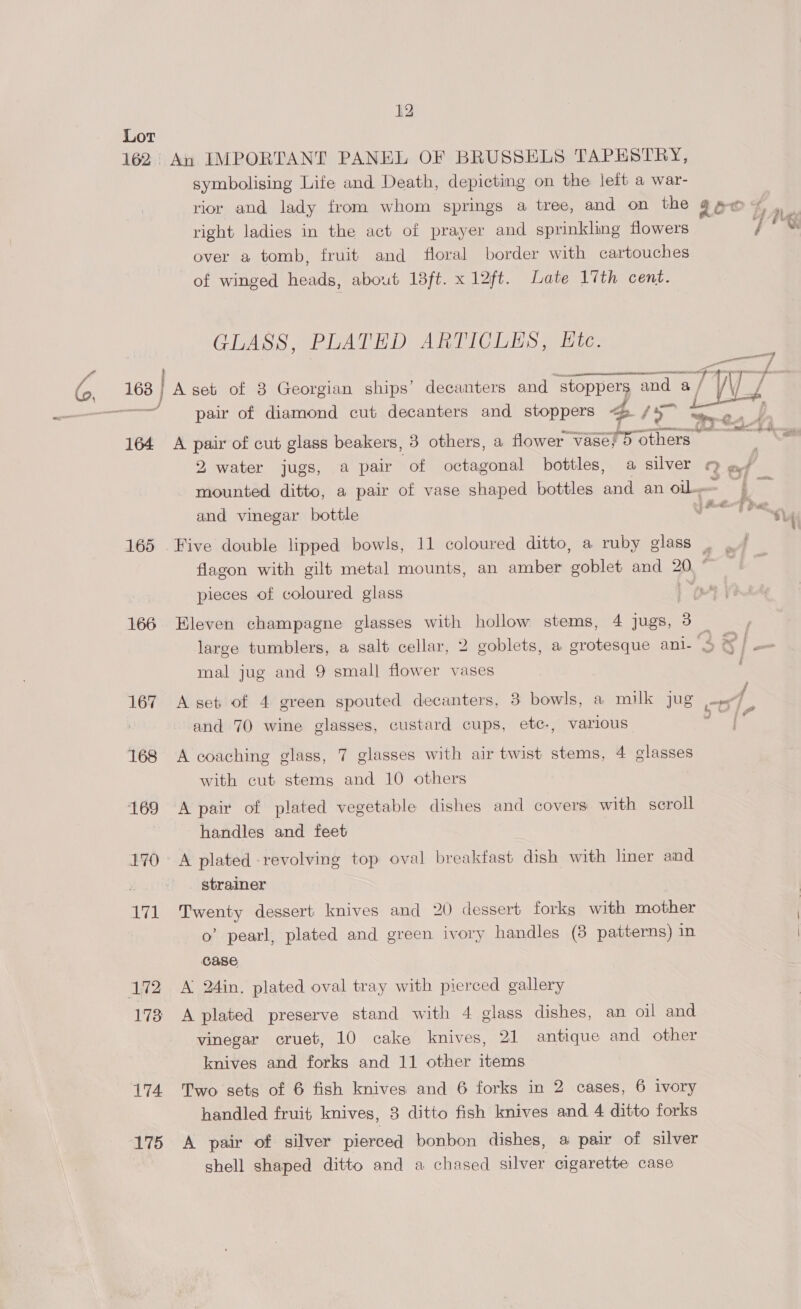 12
Lot
162 An IMPORTANT PANEL OF BRUSSELS TAPESTRY,
symbolising Life and Death, depicting on the left a war-
rior and lady from whom springs a tree, and on the
right ladies in the act of prayer and sprinkling flowers
over a tomb, fruit and floral border with cartouches
of winged heads, about 13ft. x 12ft. Late 17th cent.
GLASS, PLATED ARTICLES, Etc.
163 A set of 3 Georgian ships' decanters and stoppers and a
pair of diamond cut decanters and stoppers
164 A pair of cut glass beakers, 3 others, a flower vase, 5 others
2 water jugs, a pair of octagonal bottles, a silver
mounted ditto, a pair of vase shaped bottles and an oil
and vinegar bottle
165 Five double lipped bowls, 11 coloured ditto, a ruby glass
flagon with gilt metal mounts, an amber goblet and 20
pieces of coloured glass
166 Eleven champagne glasses with hollow stems, 4 jugs, 3
large tumblers, a salt cellar, 2 goblets, a grotesque ani-
mal jug and 9 small flower vases
167 A set of 4 green spouted decanters, 3 bowls, a milk jug
and 70 wine glasses, custard cups, etc., various
168 A coaching glass, 7 glasses with air twist stems, 4 glasses
with cut stems and 10 others
169 A pair of plated vegetable dishes and covers with scroll
handles and feet
170 A plated revolving top oval breakfast dish with liner and
strainer
171 Twenty dessert knives and 20 dessert forks with mother
o' pearl, plated and green ivory handles (3 patterns) in
case
172 A 24in. plated oval tray with pierced gallery
173 A plated preserve stand with 4 glass dishes, an oil and
vinegar cruet, 10 cake knives, 21 antique and other
knives and forks and 11 other items
174 Two sets of 6 fish knives and 6 forks in 2 cases, 6 ivory
handled fruit knives, 3 ditto fish knives and 4 ditto forks
175 A pair of silver pierced bonbon dishes, a pair of silver
shell shaped ditto and a chased silver cigarette case